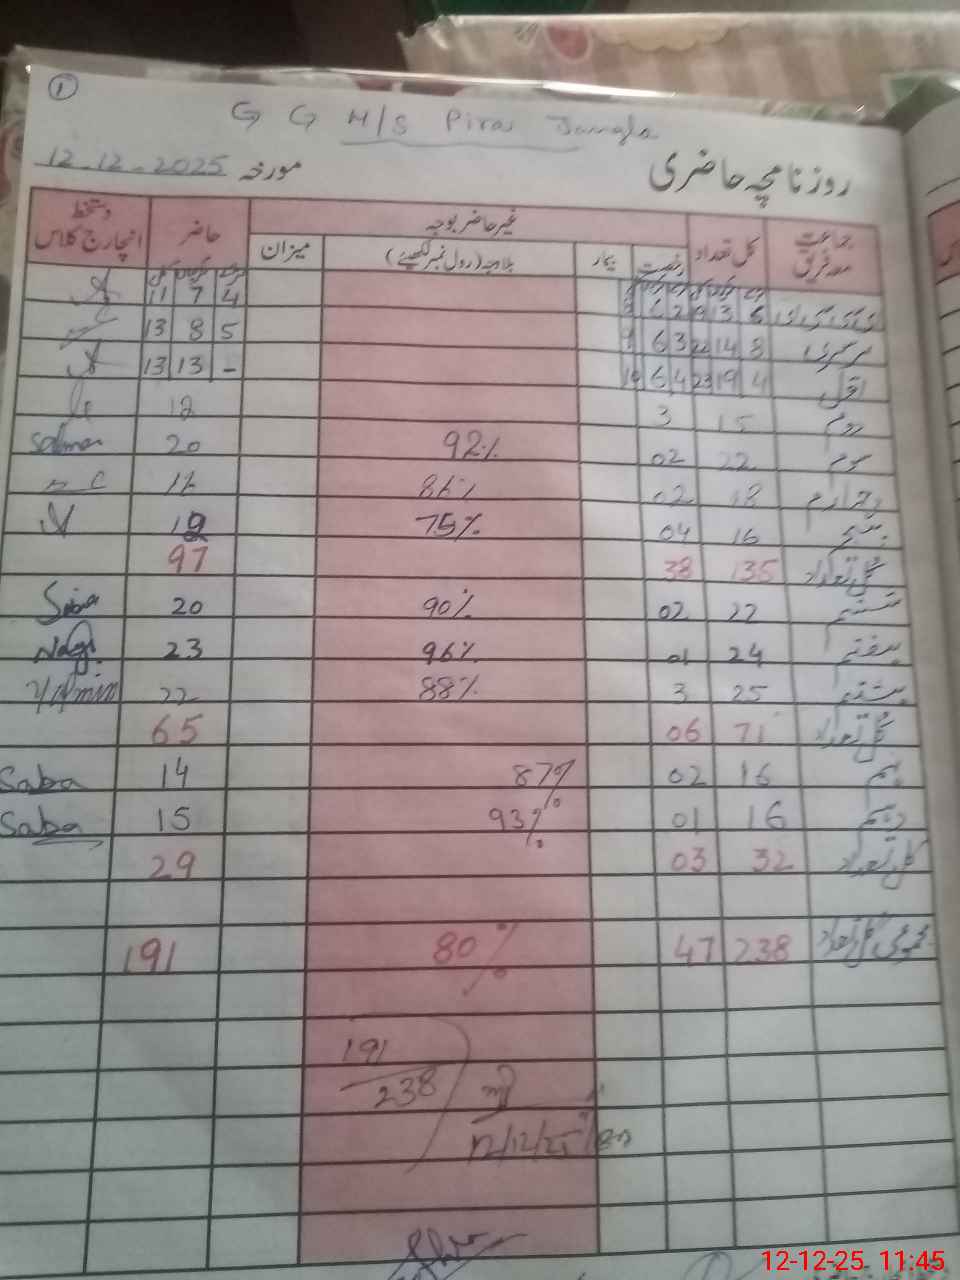 1
G G H/S Piras Jangla
روزنامچہ حاضری مورخہ 12-12-2025
جماعت معہ فریق کل تعداد غیر حاضر بوجہ حاضر دستخط انچارج کلاس
رخصت بیمار بلاوجہ (رول نمبر لکھیئے) میزان
6 13 19 2 4 7 11
8 14 22 3 6 9 5 8 13
اول 4 19 23 4 6 10 - 13 13
دوم 15 3 12
سوم 22 02 92% 20 Salma
چہارم 18 02 86% 16
پنجم 16 04 75% 12
کل تعداد 135 38 97
ششم 22 02 90% 20 Saba
ہفتم 24 01 96% 23
ہشتم 25 3 88% 22
کل تعداد 71 06 65
نہم 16 02 87% 14 Saba
دہم 16 01 93% 15 Saba
کل تعداد 32 03 29
مجموعی کل تعداد 238 47 80% 191
191
238
12/12/25
12-12-25 11:45